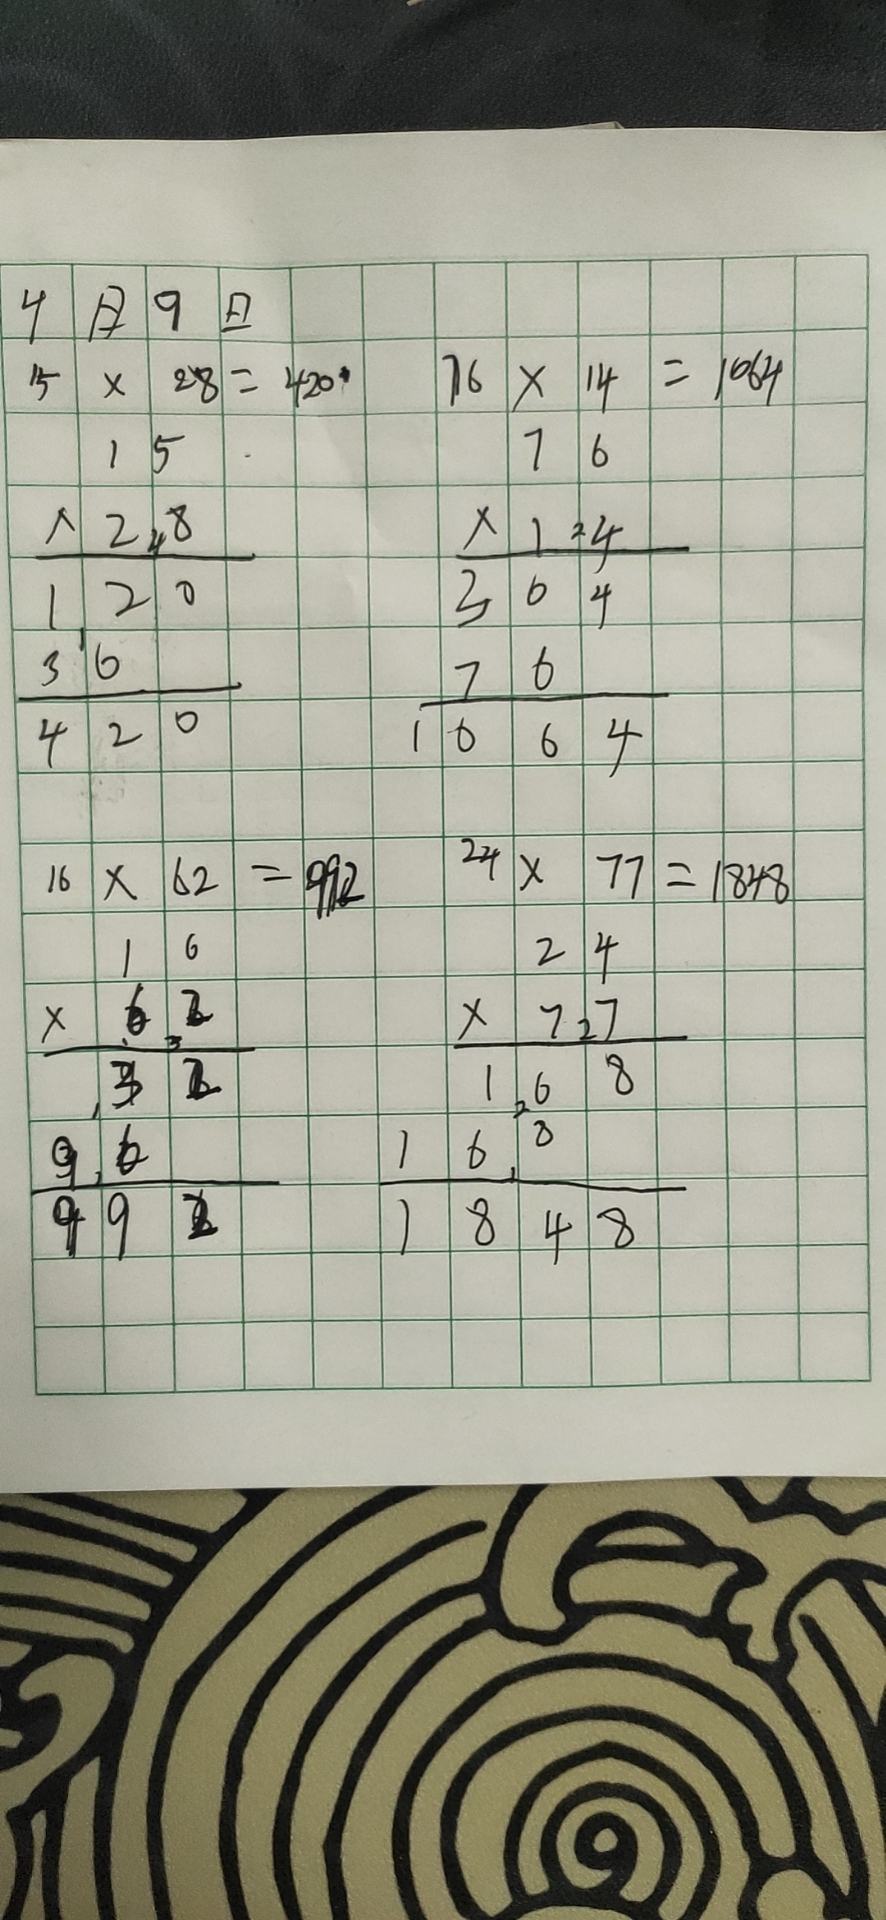 4月9日
15 × 28 = 420
15
× 28
120
30
420
76 × 14 = 1064
76
× 14
304
76
1064
16 × 62 = 992
16
× 62
32
96
992
24 × 77 = 1848
24
× 77
168
168
1848